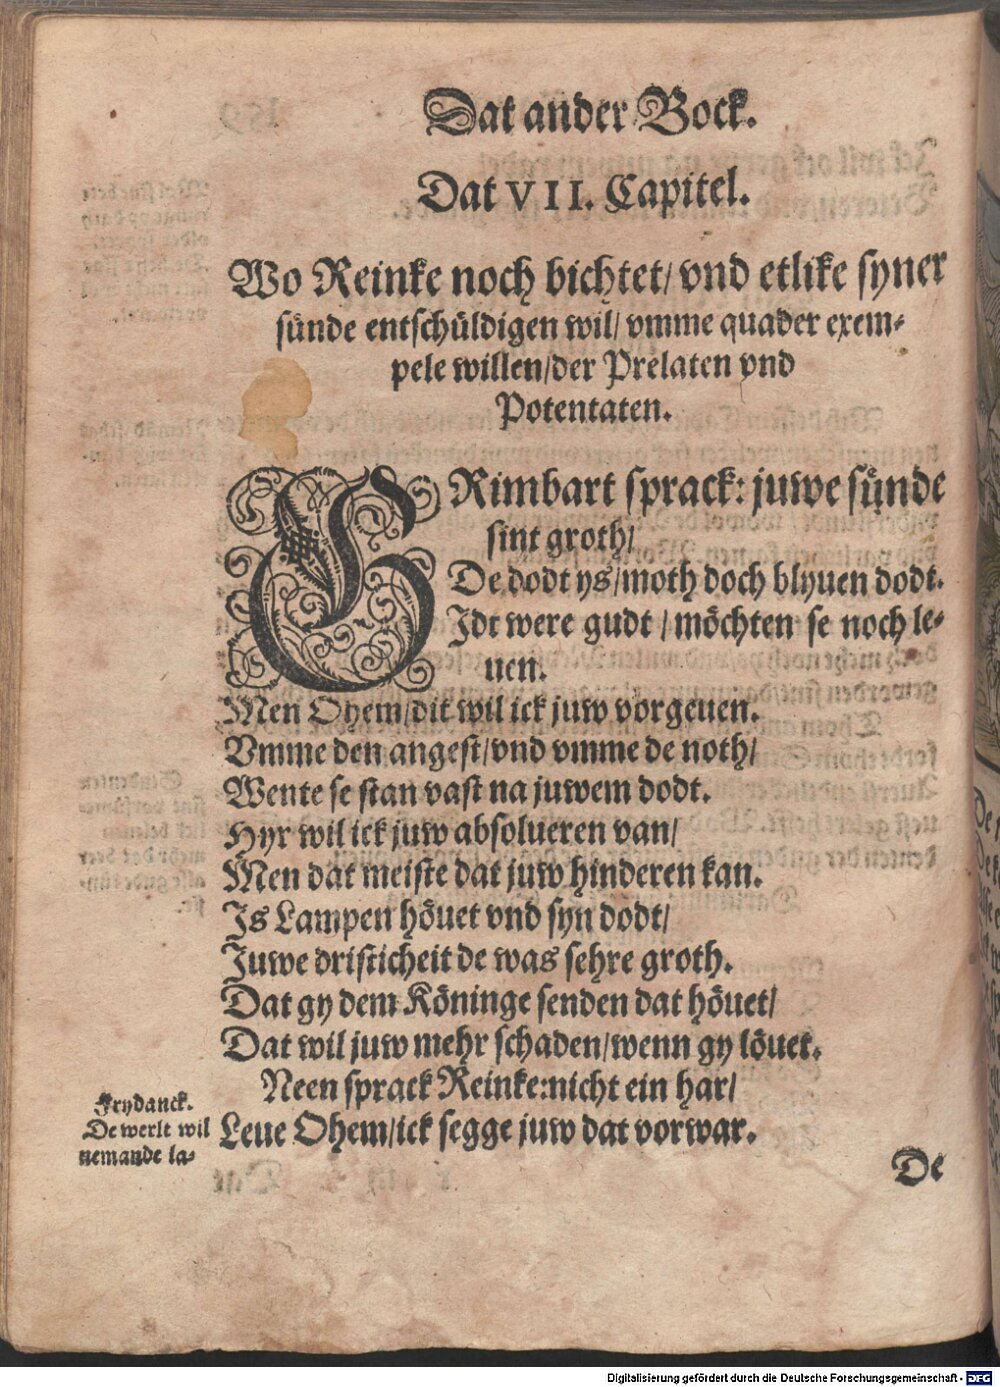 Dat ander Bock.
Dat VII. Capitel.
Wo Reinke noch bichtet/ vnd etlike syner
sünde entschüldigen wil/ vmme quader exem-
pele willen/der Prelaten vnd
Potentaten.
GRimbart sprack: juwe sünde
sint groth/
De dodt ys/moth doch blyuen dodt.
Idt were gudt / möchten se noch le-
uen.
Men Ohem/dit wil ick juw vorgeuen.
Vmme den angest/vnd vmme de noth/
Wente se stan vast na juwem dodt.
Hyr wil ick juw absolueren van/
Men dat meiste dat juw hinderen kan.
Is Lampen höuet vnd syn dodt/
Juwe dristicheit de was sehre groth.
Dat gy dem Köninge senden dat höuet/
Dat wil juw mehr schaden/wenn gy löuet.
Neen sprack Reinke:nicht ein har/
Leue Ohem/ick segge juw dat vorwar.
Frydanck.
De werlt wil
nemande la-
De
Digitalisierung gefördert durch die Deutsche Forschungsgemeinschaft - DFG